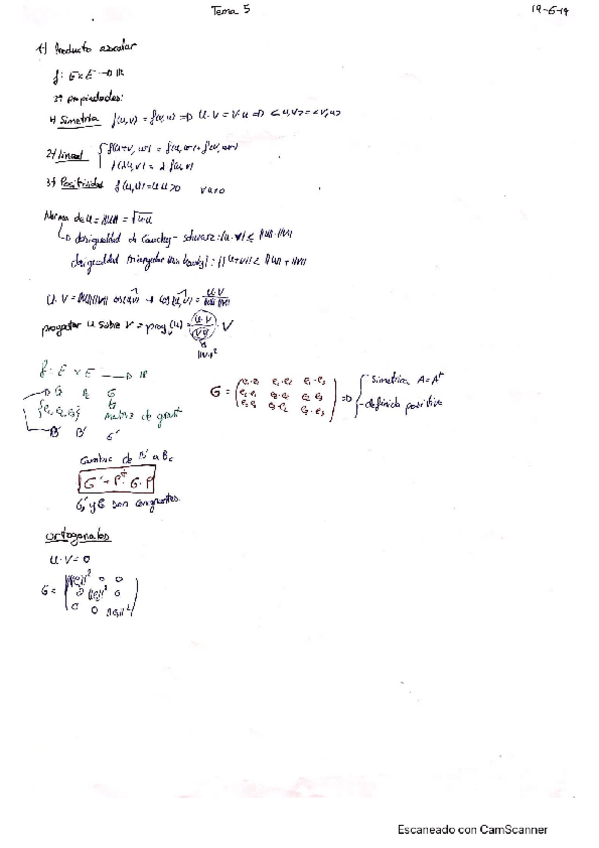 Tema 5
19-6-19
1) Producto escalar
f: E x E → IR
3 propiedades:
1) Simetria f(u,v) = f(v,u) => u·v = v·u => <u,v> = <v,u>
2) lineal { f(u+v, w) = f(u,w) + f(v,w)
f(λu,v) = λ f(u,v)
3) Positividad f(u,u) = u·u > 0
Norma de u = ||u|| = √u·u
desigualdad de Cauchy-schwarz: |u·v| ≤ ||u||·||v||
desigualdad triangular: ||u+v|| ≤ ||u|| + ||v||
u·v = ||u||·||v|| cos(u,v) → cos(u,v) = u·v / ||u||·||v||
proyectar u sobre v = proy_v(u) = (u·v / v·v) · v
||v||²
f: E x E → IR
{e₁ e₂ e₃} Matriz de gram
B' B' G'
G = ( e₁·e₁ e₁·e₂ e₁·e₃
e₂·e₁ e₂·e₂ e₂·e₃
e₃·e₁ e₃·e₂ e₃·e₃ ) => { simetrica A = Aᵗ
- definida positiva
Cambio de B' a Bc
G' = Pᵗ·G·P
G' y G son congruentes
ortogonales
u·v = 0
G = ( ||e₁||² 0 0
0 ||e₂||² 0
0 0 ||e₃||² )
Escaneado con CamScanner